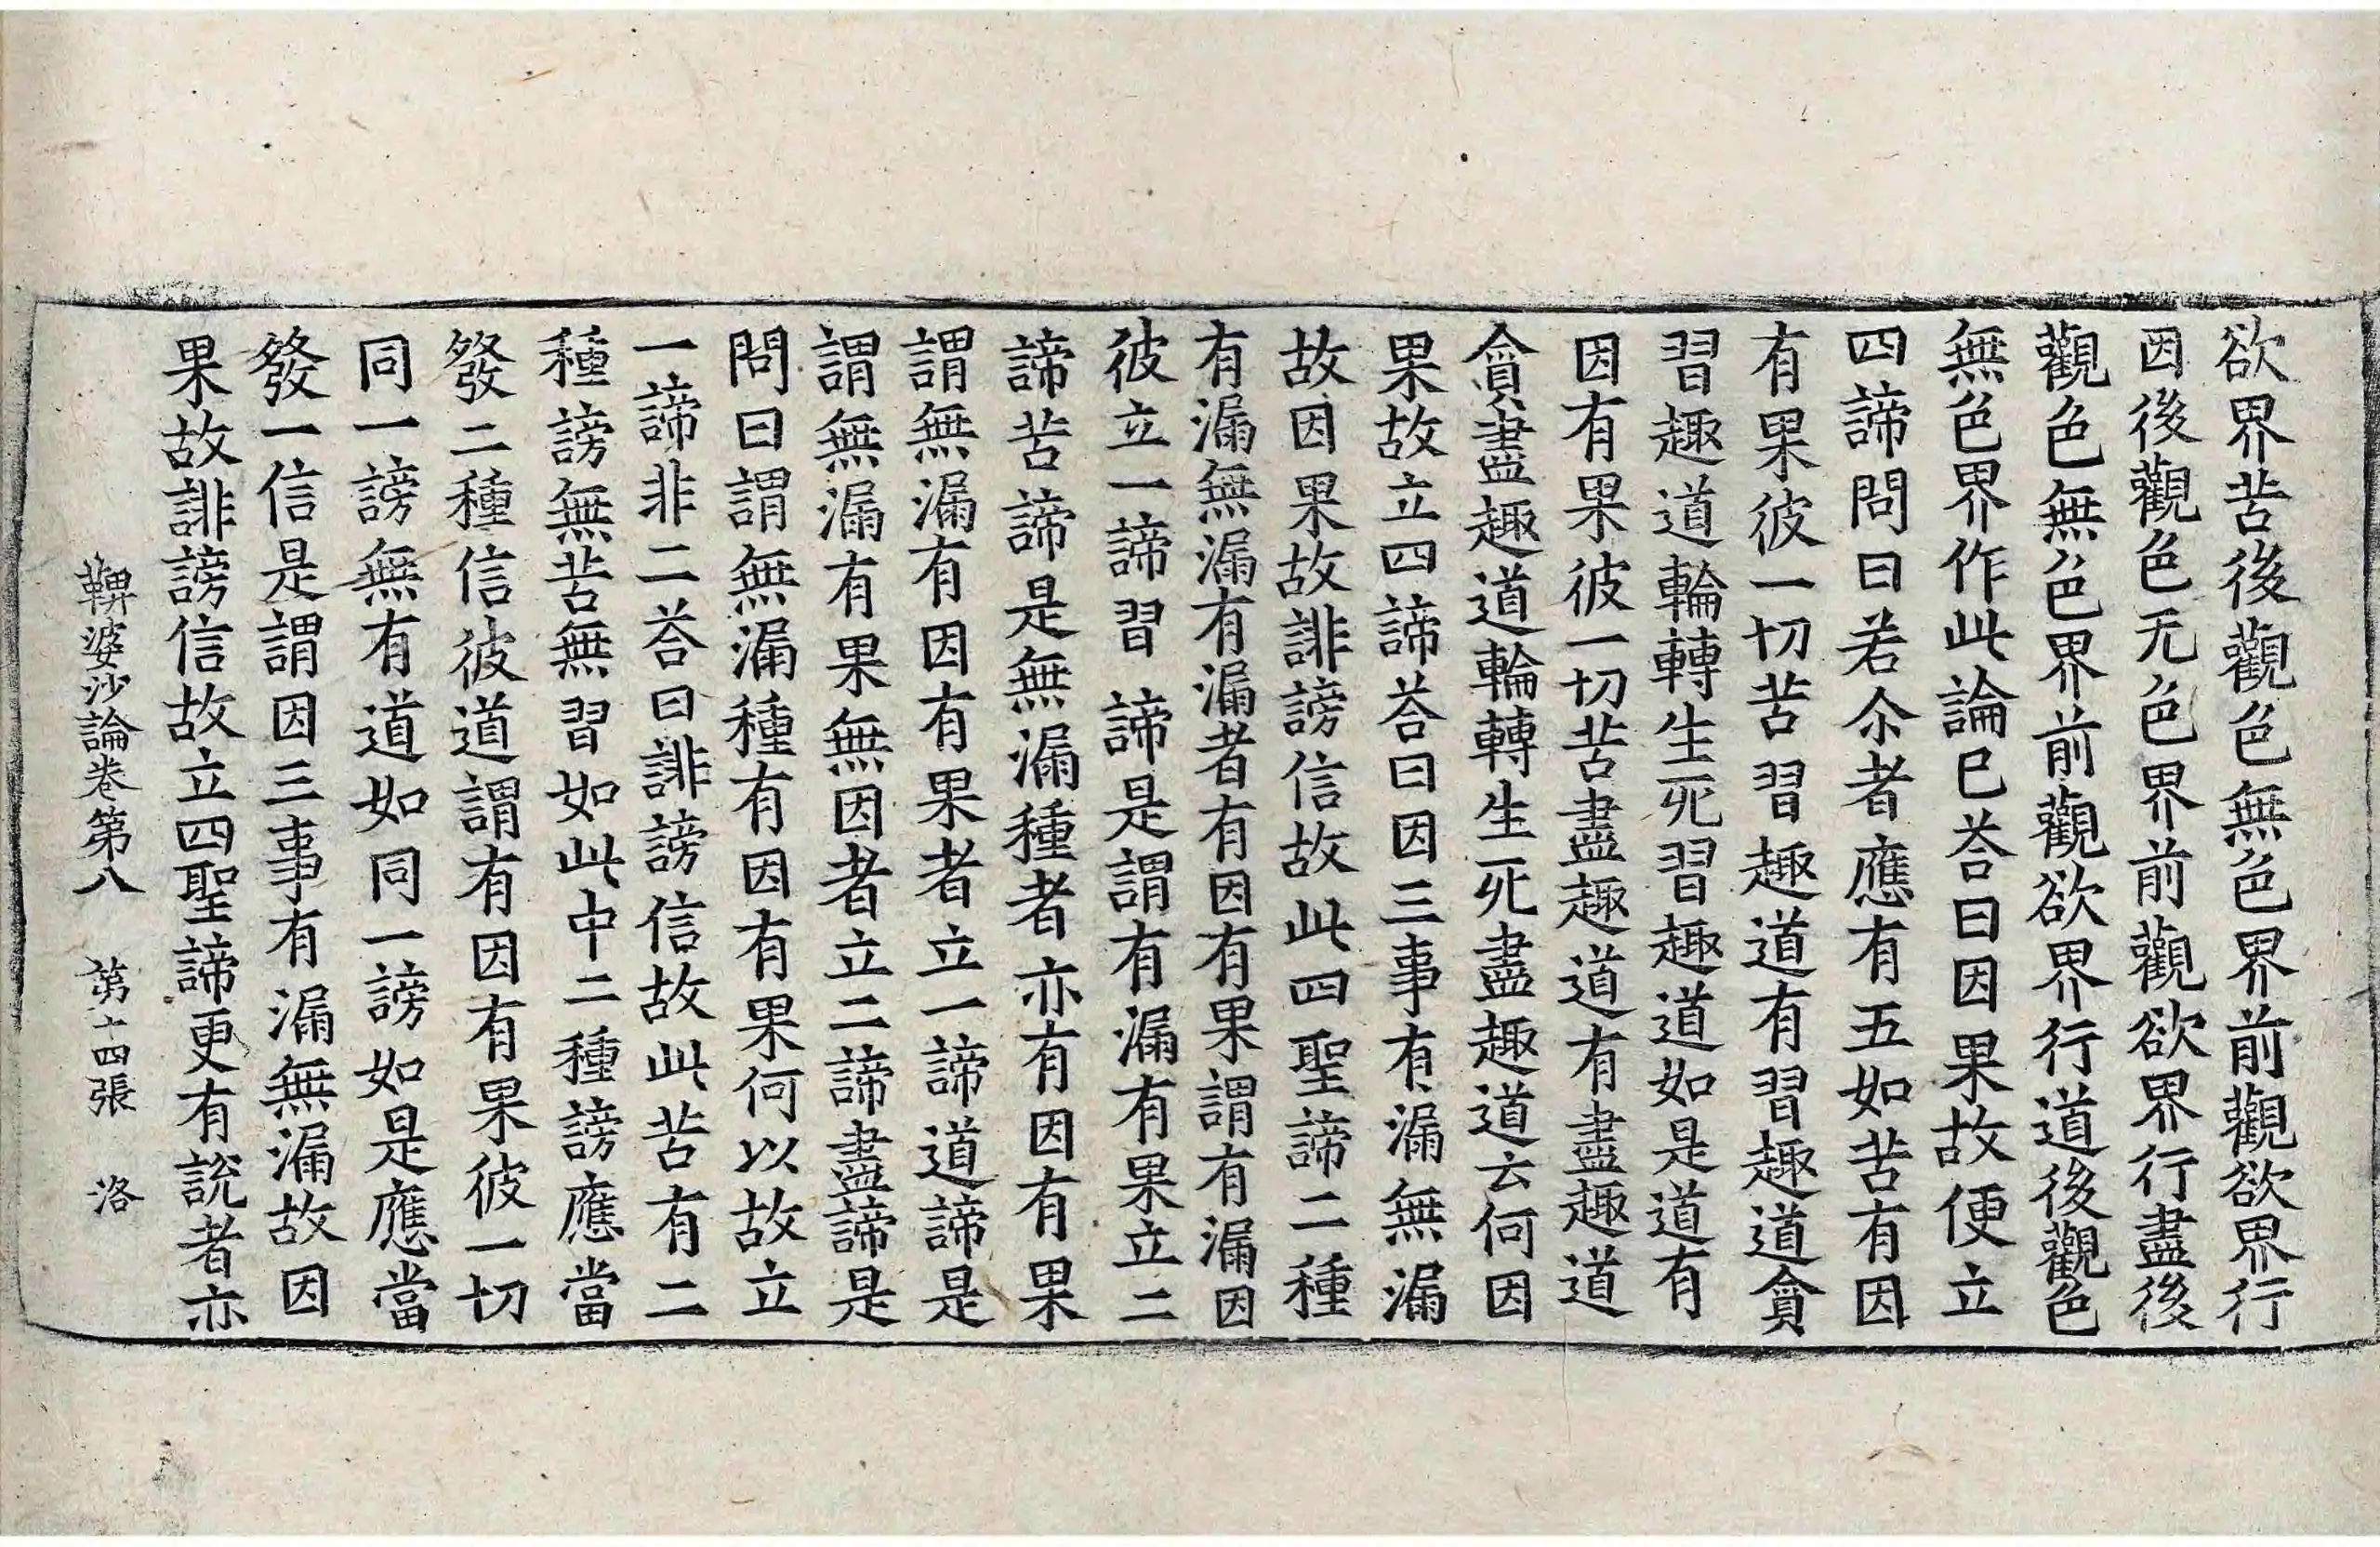 欲界苦後觀色無色界前觀欲界行
因後觀色无色界前觀欲界行盡後
觀色無色界前觀欲界行道後觀色
無色界作此論已荅曰因果故便立
四諦問曰若尒者應有五如苦有因
有果彼一切苦習趣道有習趣道貪
習趣道輪轉生死習趣道如是道有
因有果彼一切苦盡趣道有盡趣道
貪盡趣道輪轉生死盡趣道云何因
果故立四諦荅曰因三事有漏無漏
故因果故誹謗信故此四聖諦二種
有漏無漏有漏者有因有果謂有漏因
彼立一諦習諦是謂有漏有果立二
諦苦諦是無漏種者亦有因有果
謂無漏有因有果者立一諦道諦是
謂無漏有果無因者立二諦盡諦是
問曰謂無漏種有因有果何以故立
一諦非二荅曰誹謗信故此苦有二
種謗無苦無習如此中二種謗應當
發二種信彼道謂有因有果彼一切
同一謗無有道如同一謗如是應當
發一信是謂因三事有漏無漏故因
果故誹謗信故立四聖諦更有説者亦
鞞婆沙論卷第八 第十四張 洛